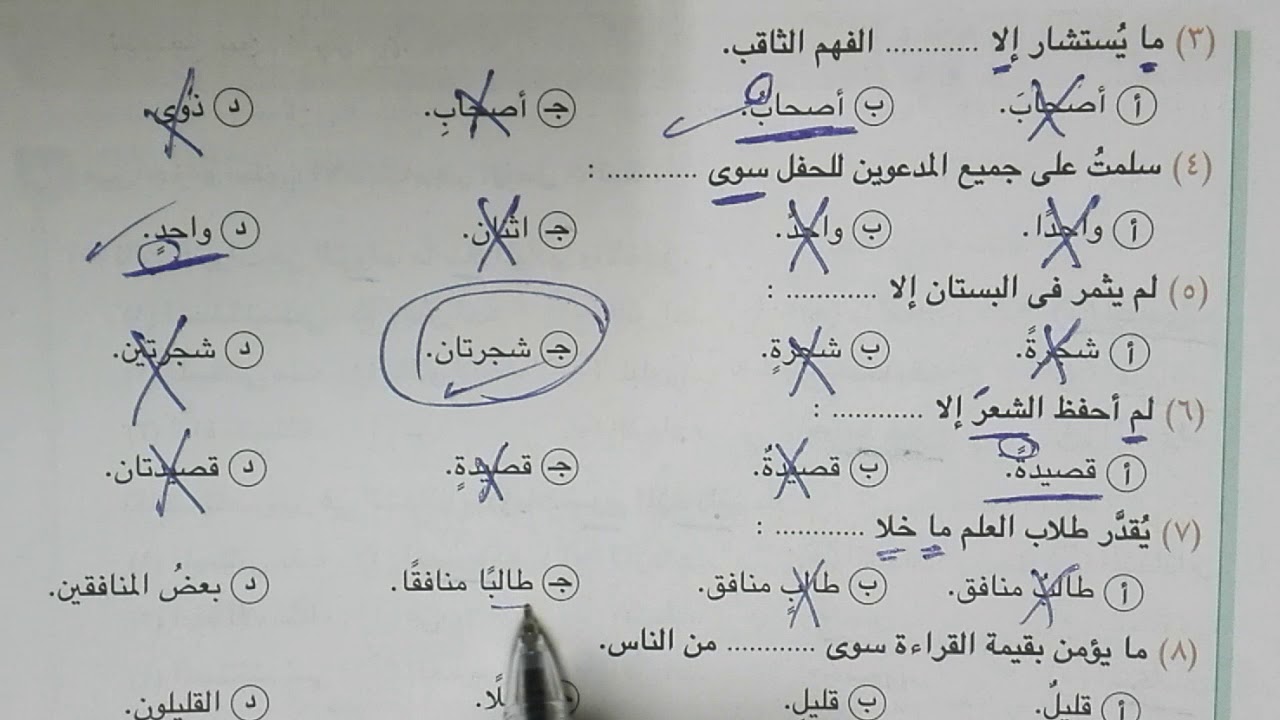 (٣) ما يُستشار إلا ............ الفهم الثاقب.
أ أصحابَ. ب أصحابُ. جـ أصحابِ. د ذوى.
(٤) سلمتُ على جميع المدعوين للحفل سوى ............ :
أ واحدًا. ب واحدٌ. جـ اثنان. د واحدٍ.
(٥) لم يثمر فى البستان إلا ............ :
أ شجرةً. ب شجرةٍ. جـ شجرتان. د شجرتين.
(٦) لم أحفظ الشعرَ إلا ............ :
أ قصيدةً. ب قصيدةٌ. جـ قصيدةٍ. د قصيدتان.
(٧) يُقدَّر طلاب العلم ما خلا ............ :
أ طالبٌ منافق. ب طالبٍ منافق. جـ طالبًا منافقًا. د بعضُ المنافقين.
(٨) ما يؤمن بقيمة القراءة سوى ............ من الناس.
أ قليلٌ. ب قليلٍ. د القليلون.